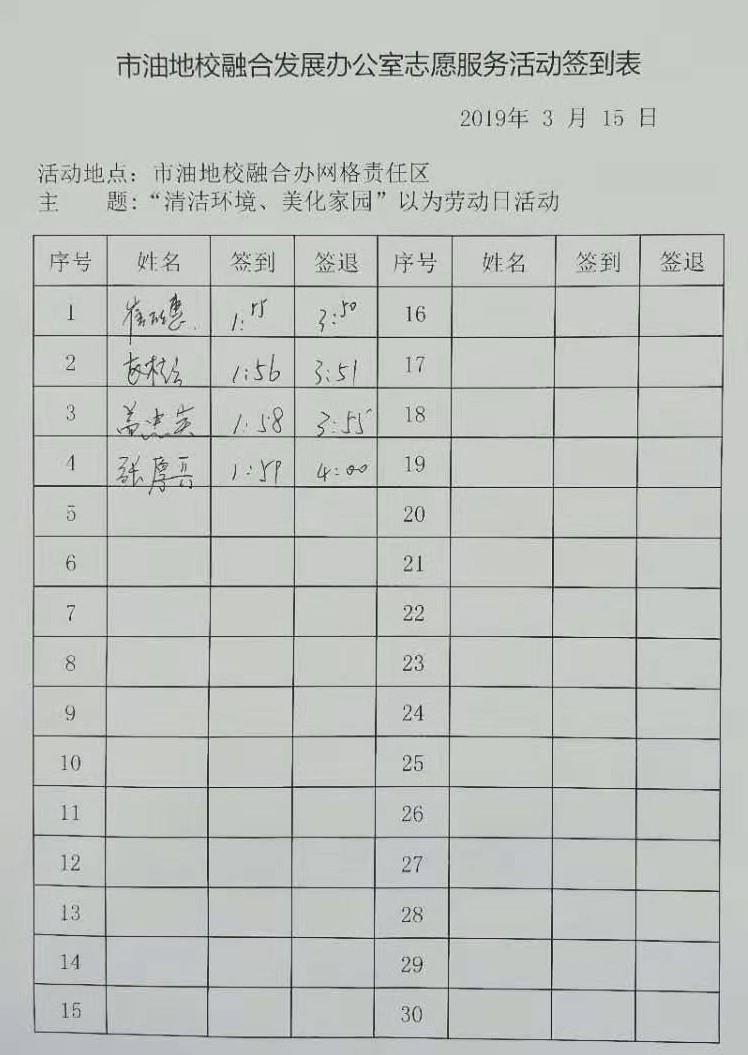 市油地校融合发展办公室志愿服务活动签到表
2019年 3 月 15 日
活动地点：市油地校融合办网格责任区
主 题：“清洁环境、美化家园”以为劳动日活动
序号 姓名 签到 签退 序号 姓名 签到 签退
1 1:55 3:50 16
2 1:56 3:51 17
3 1:58 3:55 18
4 张厚兵 1:59 4:00 19
5 20
6 21
7 22
8 23
9 24
10 25
11 26
12 27
13 28
14 29
15 30